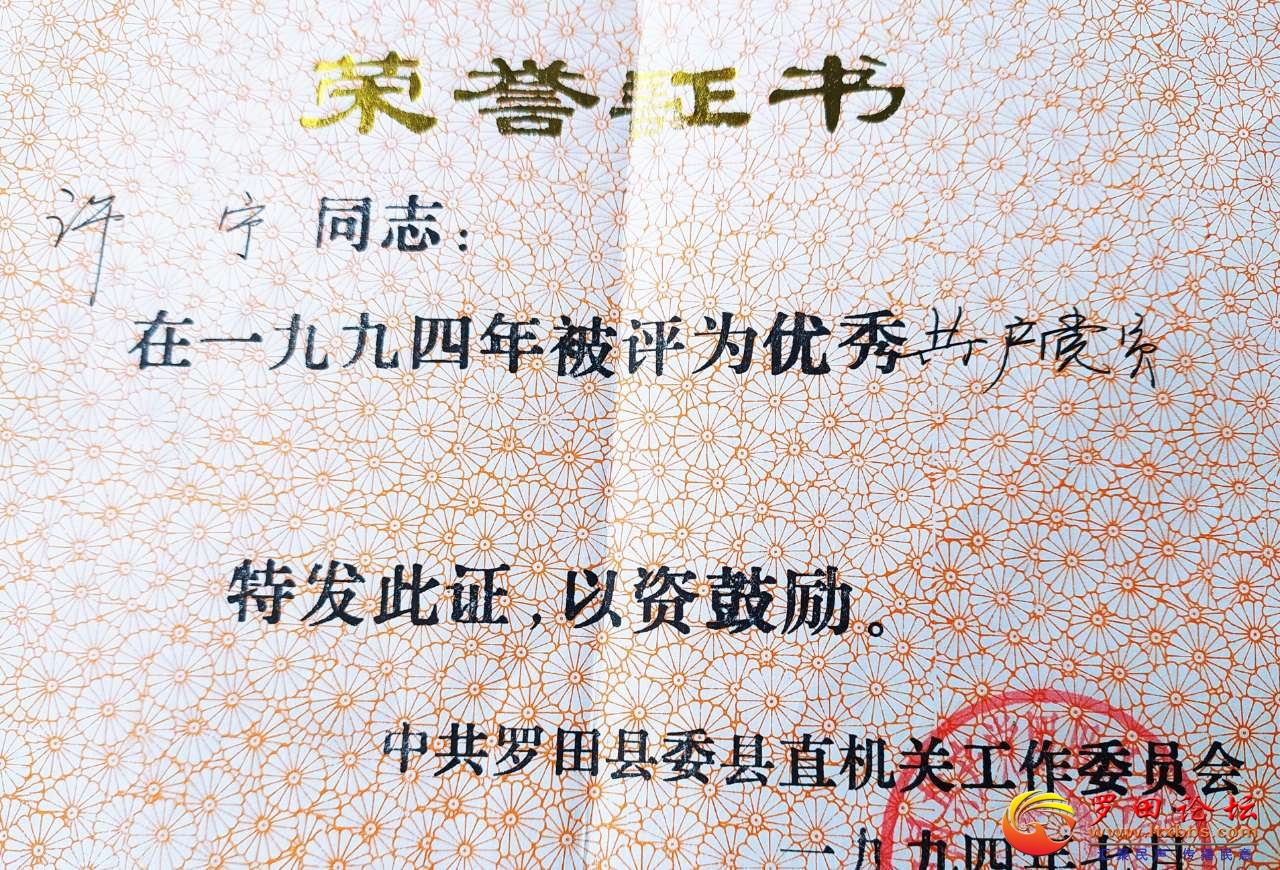 荣誉证书
许宇同志：
在一九九四年被评为优秀共产党员
特发此证，以资鼓励。
中共罗田县委县直机关工作委员会
一九九四年七月
罗田论坛
www.ltxbbs.com
汇聚民声 传播民意